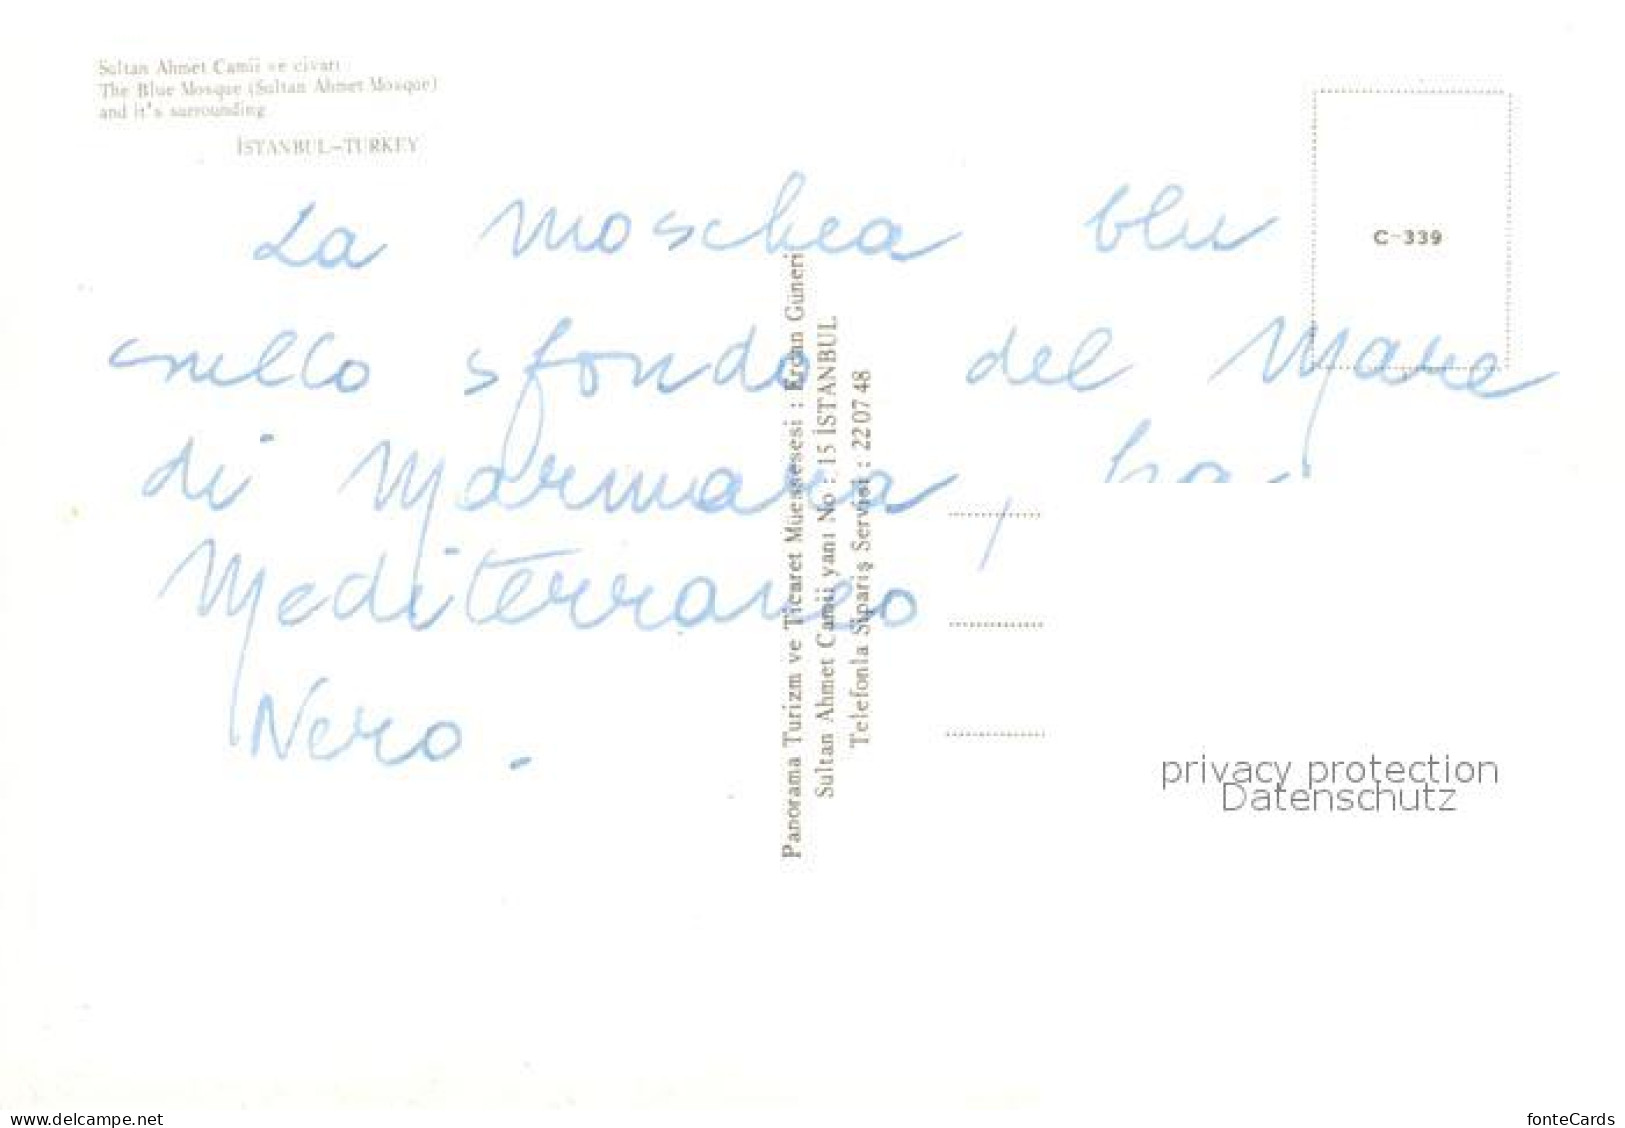 Sultan Ahmet Camii ve civarı
The Blue Mosque (Sultan Ahmet Mosque)
and it's surrounding
İSTANBUL-TURKEY
La moschea blu
nello sfondo del Mare
di Marmara,
Mediterraneo
Nero.
C-339
Panorama Turizm ve Ticaret Müessesesi : Ercan Güneri
Sultan Ahmet Camii yanı No : 15 İSTANBUL
Telefonla Sipariş Servisi : 22 07 48
privacy protection
Datenschutz
www.delcampe.net
fonteCards